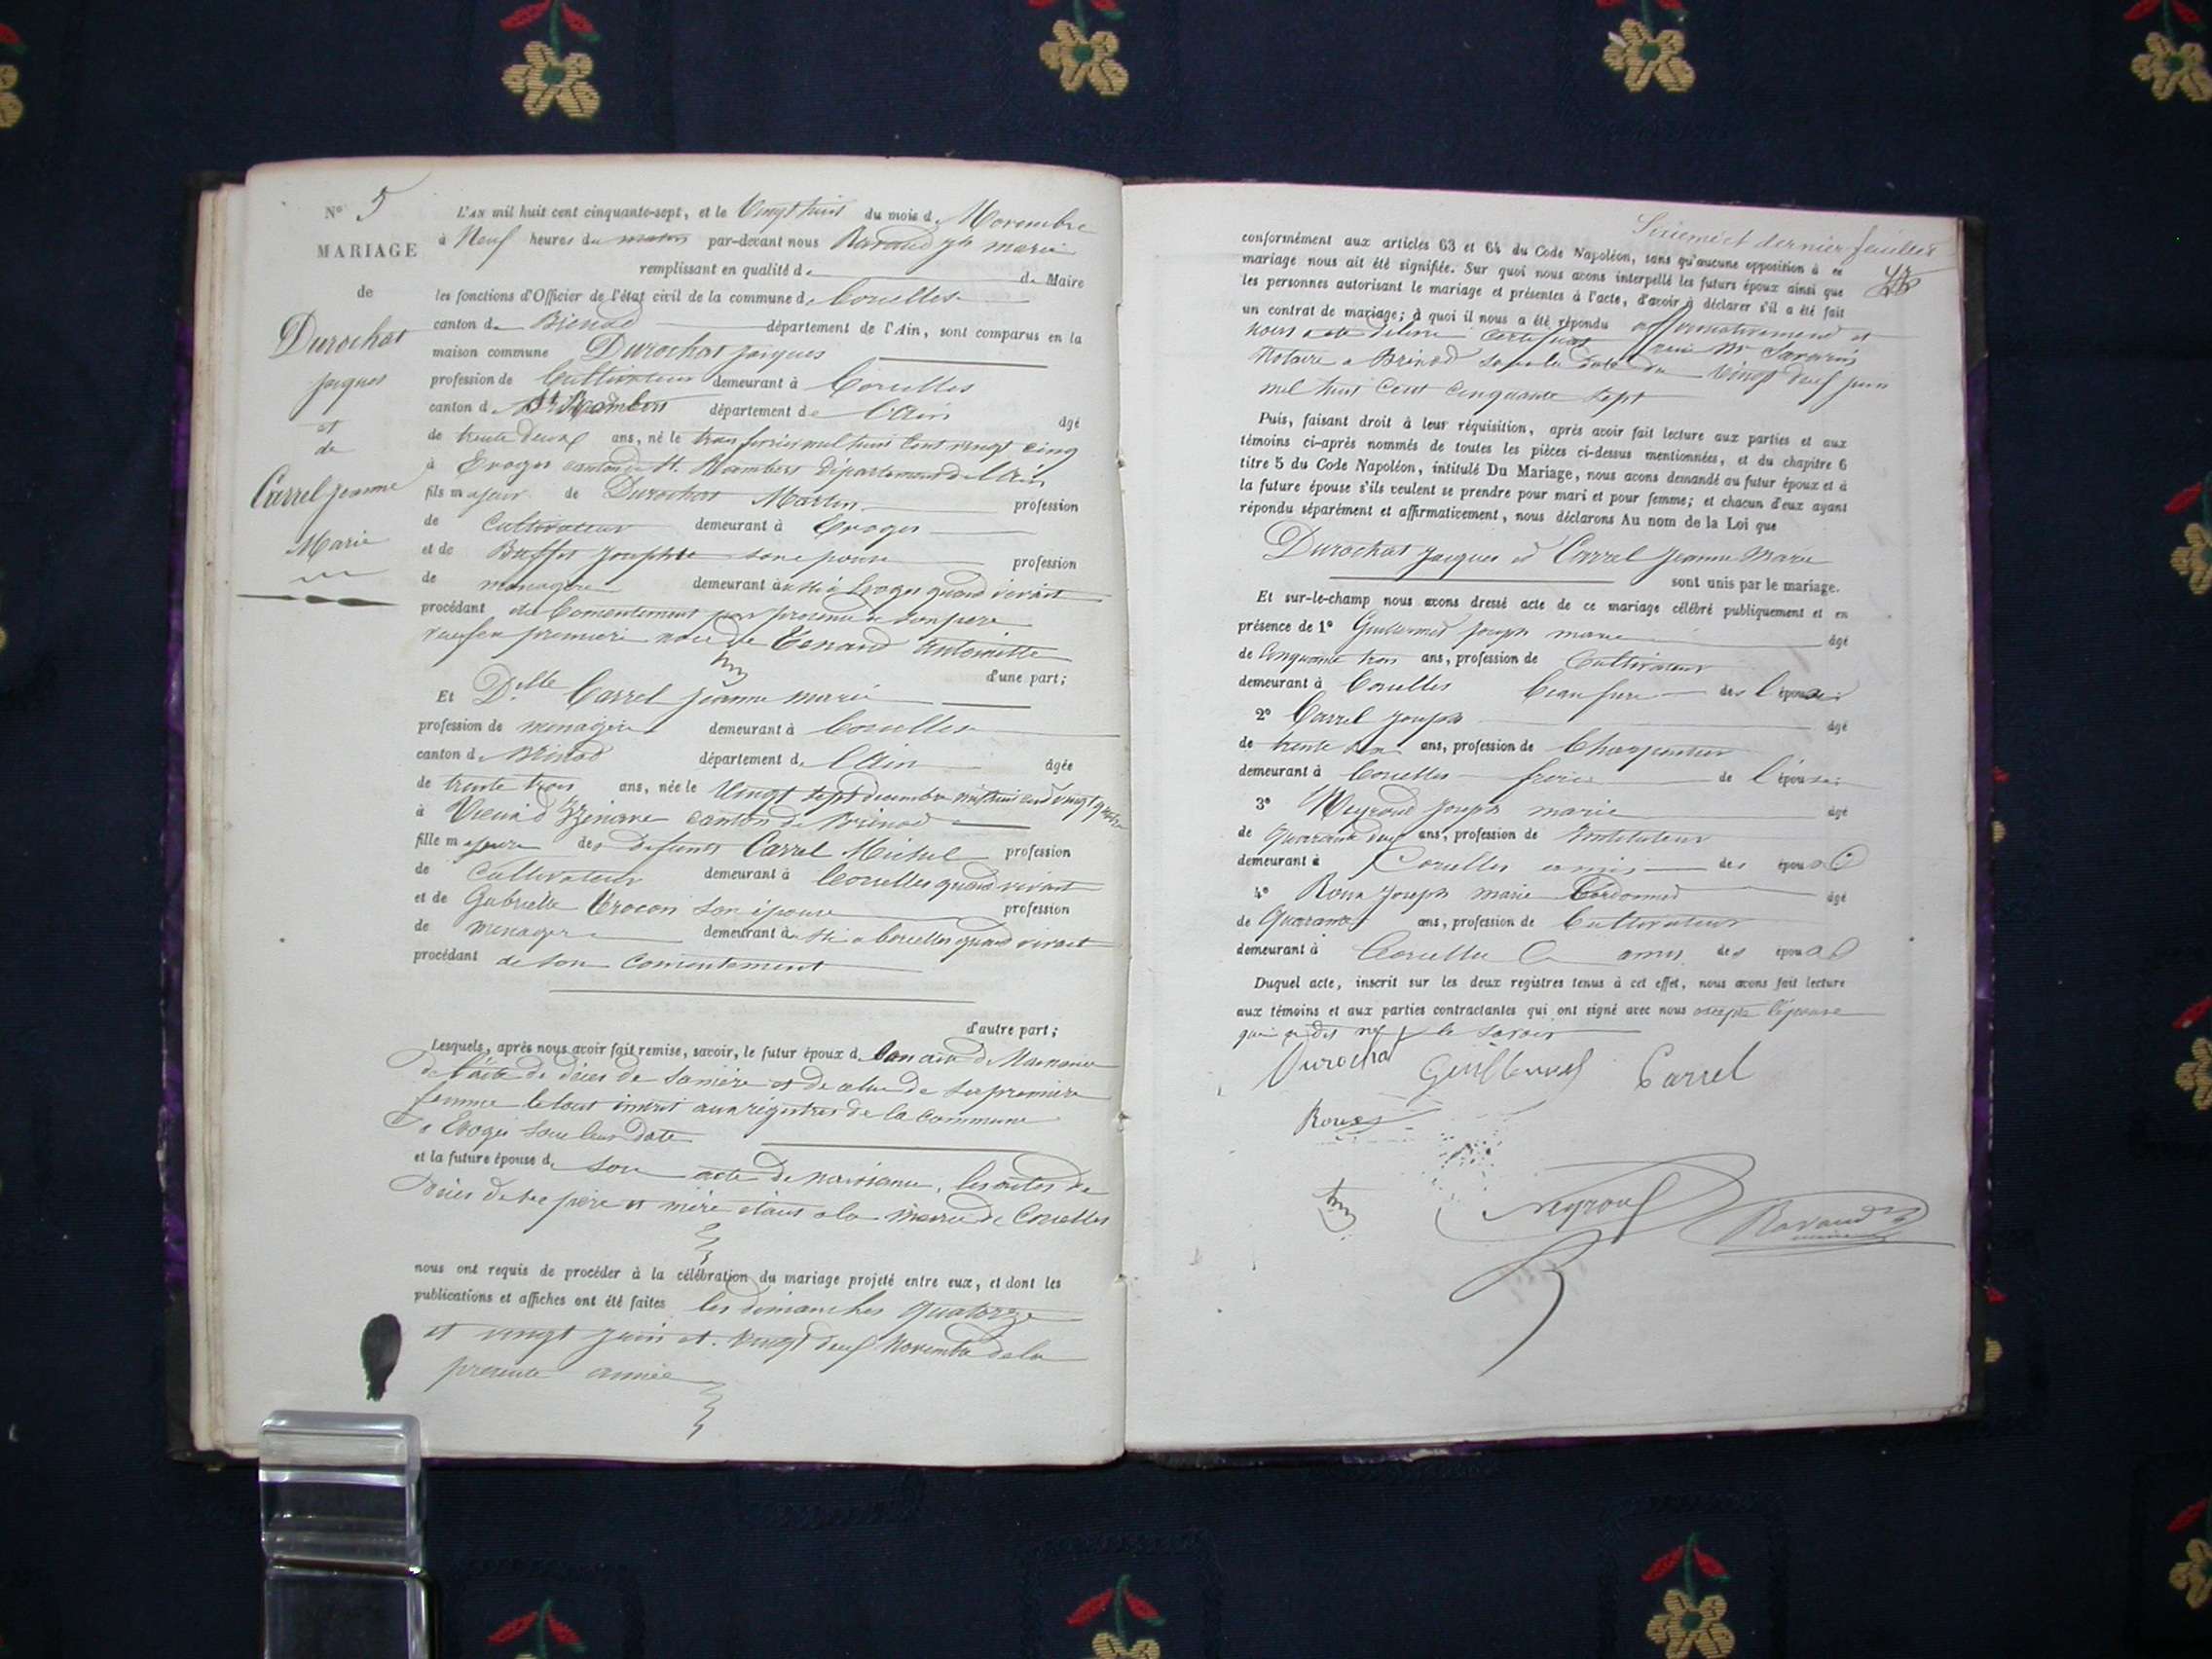 N° 5
MARIAGE
de
Durochat
jaques
et
de
Carrel jeanne
Marie
L'AN mil huit cent cinquante-sept, et le Vingt huit du mois de Novembre
à Neuf heures du matin par-devant nous Ravaud jh marie
remplissant en qualité de de Maire
les fonctions d'Officier de l'état civil de la commune de Corcelles
canton de Brenod département de l'Ain, sont comparus en la
maison commune Durochat jacques
profession de Cultivateur demeurant à Corcelles
canton de St Rambert département de l'Ain âgé
de trente deux ans, né le trois fevrier mil huit Cent vingt cinq
à Evoges canton de St. Rambert Département de l'Ain
fils majeur de Durochat Martin profession
de Cultivateur demeurant à Evoges
et de Buffet Josephte son epouse profession
de menagere demeurant à Evoges quand vivait
procédant du Consentement son père
veuf en premiere noce de Antoinette
d'une part;
Et Delle Carrel jeanne marie
profession de menagère demeurant à Corcelles
canton de Brenod département de l'Ain âgée
de trente trois ans, née le Vingt sept decembre mil huit cent vingt quatre
à Vieu d'Izenave canton de Brenod
fille majeure des defunts Carrel Michel profession
de Cultivateur demeurant à Corcelles quand vivait
et de Gabrielle son épouse profession
de menagere demeurant à Corcelles quand vivait
procédant de son Consentement
d'autre part;
Lesquels, après nous avoir fait remise, savoir, le futur époux de son acte de Naissance
de l'acte de décès de sa mère et de celui de sa première
femme le tout inscrit aux régistres de la commune
d'Evoges sous leur date
et la future épouse de son acte de naissance, les actes de
Décès de ses père et mère étant a la mairie de Corcelles
nous ont requis de procéder à la célébration du mariage projeté entre eux, et dont les
publications et affiches ont été faites les dimanches Quatorze
et vingt juin et vingt deux Novembre de la
presente année
Sixieme et dernier feuillet
conformément aux articles 63 et 64 du Code Napoléon, sans qu'aucune opposition à ce
mariage nous ait été signifiée. Sur quoi nous avons interpellé les futurs époux ainsi que
les personnes autorisant le mariage et présentes à l'acte, d'avoir à déclarer s'il a été fait
un contrat de mariage; à quoi il nous a été répondu affirmativement et
nous a été délivré certificat Mr Savarin
Notaire a Brenod sous la date du Vingt deux juin
mil huit Cent Cinquante sept
Puis, faisant droit à leur réquisition, après avoir fait lecture aux parties et aux
témoins ci-après nommés de toutes les pièces ci-dessus mentionnées, et du chapitre 6
titre 5 du Code Napoléon, intitulé Du Mariage, nous avons demandé au futur époux et à
la future épouse s'ils veulent se prendre pour mari et pour femme; et chacun d'eux ayant
répondu séparément et affirmativement, nous déclarons Au nom de la Loi que
Durochat jacques et Carrel jeanne Marie
sont unis par le mariage.
Et sur-le-champ nous avons dressé acte de ce mariage célébré publiquement et en
présence de 1° Guillermet joseph marie âgé
de Cinquante trois ans, profession de Cultivateur
demeurant à Corcelles beau frere de l'épouse
2° Carrel joseph âgé
de trente ans, profession de Charpentier
demeurant à Corcelles frère de l'épouse
3° Neyroud joseph marie âgé
de Quarante deux ans, profession de Instituteur
demeurant à Corcelles amis des époux
4° Roux joseph marie âgé
de Quarante ans, profession de Cultivateur
demeurant à Corcelles amis des époux
Duquel acte, inscrit sur les deux registres tenus à cet effet, nous avons fait lecture
aux témoins et aux parties contractantes qui ont signé avec nous excepté l'épouse
qui a dit ne le savoir
Durochat Guillermet Carrel
Roux
Neyroud Ravaud